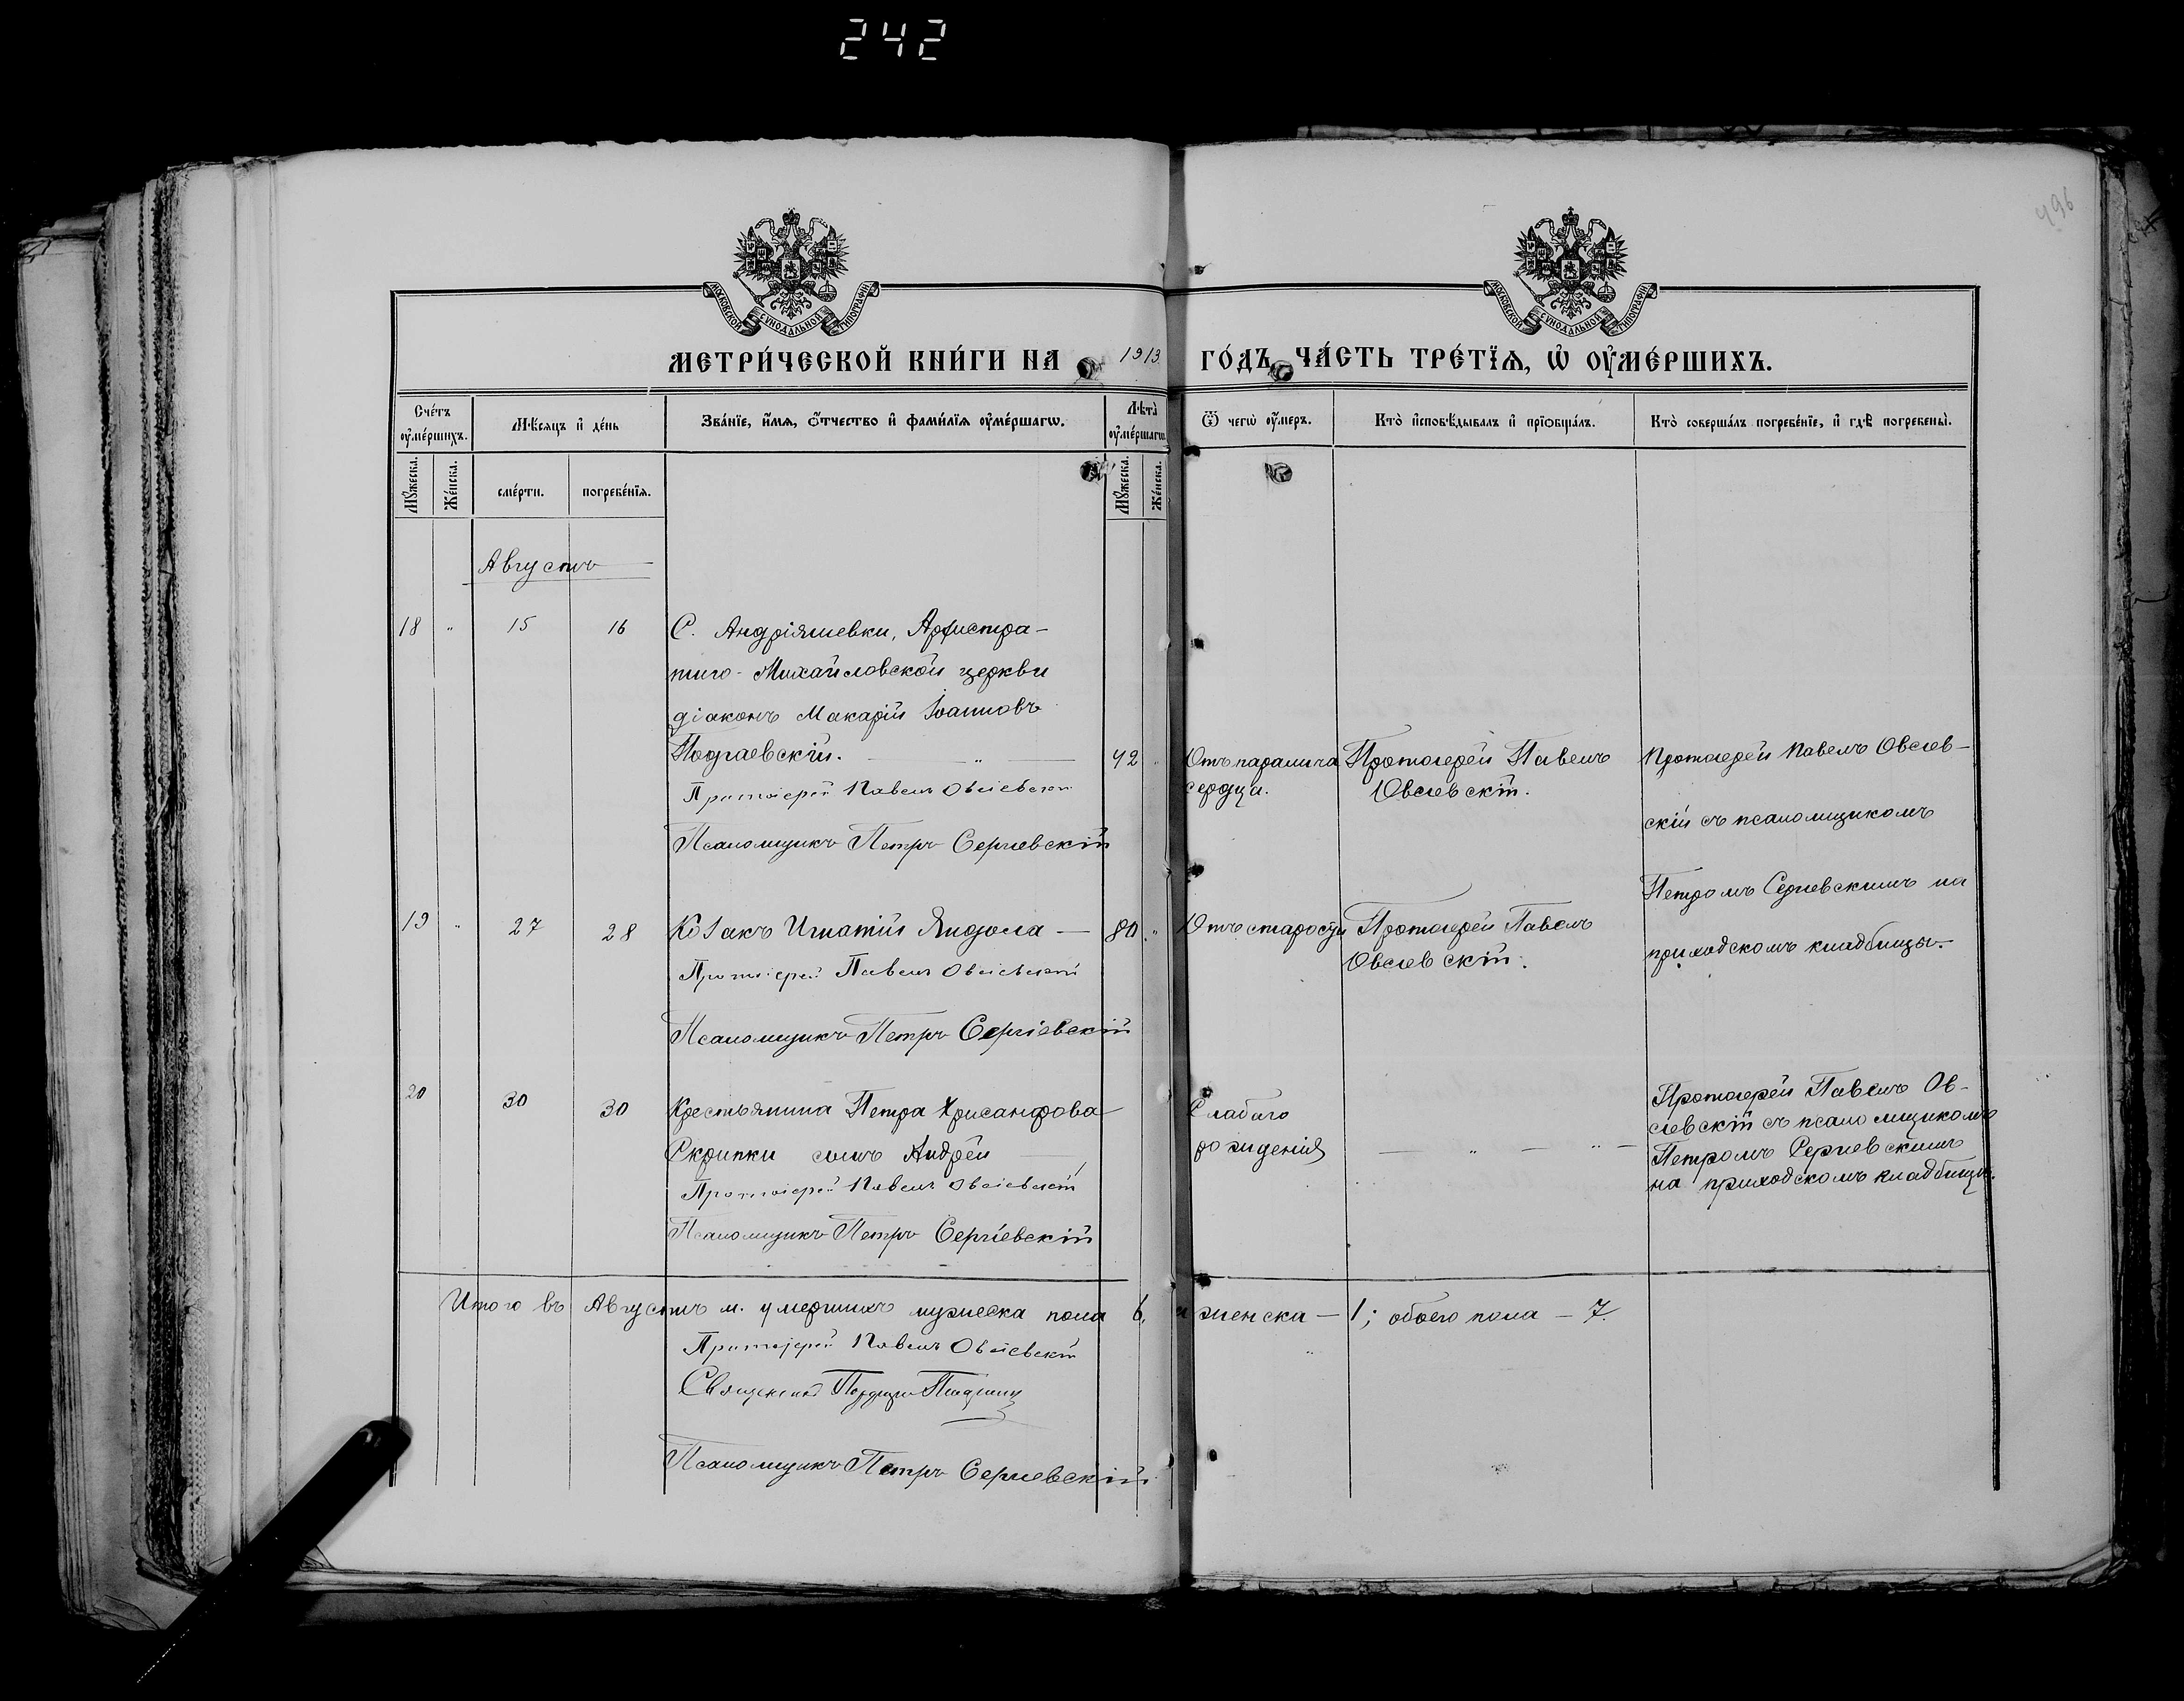 242
496
МОСКОВСКОЙ СѴНОДАЛЬНОЙ ТИПОГРАФІИ
МОСКОВСКОЙ СѴНОДАЛЬНОЙ ТИПОГРАФІИ
МЕТРИ́ЧЕСКОЙ КНИ́ГИ НА 1913 ГО́ДЪ, ЧА́СТЬ ТРЕ́ТЇѦ, Ѡ҆ ОУ҆МЕ́РШИХЪ.
Сче́тъ оу҆ме́ршихъ.
Мꙋ́жеска.
Же́нска.
Мѣ́сяцъ и҆ де́нь
сме́рти.
погребе́нїѧ.
Зва́нїе, и҆́мѧ, ѻ҆́тчество и҆ фамилїѧ оу҆ме́ршагѡ.
Лѣ̀та̀ оу҆ме́ршагѡ.
Мꙋ́жеска.
Же́нска.
Ѿ чегѡ̀ оу҆́меръ.
Кто̀ и҆сповѣ́дывалъ и҆ прїѡбща́лъ.
Кто̀ соверша́лъ погребе́нїе, и҆ гдѣ̀ погребены̀.
Августъ
18 " 15 16 С. Андріяшевки, Архистра-
тиго-Михайловской церкви
діаконъ Макарій Іоанновъ
Подгаевскій. — " — 42 "
Протоіерей Павелъ Овсіевскій
Псаломщикъ Петръ Сергіевскій
Отъ паралича
сердца.
Протоіерей Павелъ
Овсіевскій.
Протоіерей Павелъ Овсіев-
скій съ псаломщикомъ
Петромъ Сергіевскимъ на
приходскомъ кладбищѣ.
19 " 27 28 Козакъ Игнатій Яндола — 80 "
Протоіерей Павелъ Овсіевскій
Псаломщикъ Петръ Сергіевскій
Отъ старости
Протоіерей Павелъ
Овсіевскій.
20 30 30 Крестьянина Петра Хрисанфова
Скрипки сынъ Андрей —
Протоіерей Павелъ Овсіевскій
Псаломщикъ Петръ Сергіевскій
Слабаго
рожденія
— " — " —
Протоіерей Павелъ Ов-
сіевскій съ псаломщикомъ
Петромъ Сергіевскимъ
на приходскомъ кладбищѣ.
Итого въ Августѣ м. умершихъ мужеска пола 6, и женска — 1; обоего пола — 7.
Протоіерей Павелъ Овсіевскій
Священникъ
Псаломщикъ Петръ Сергіевскій